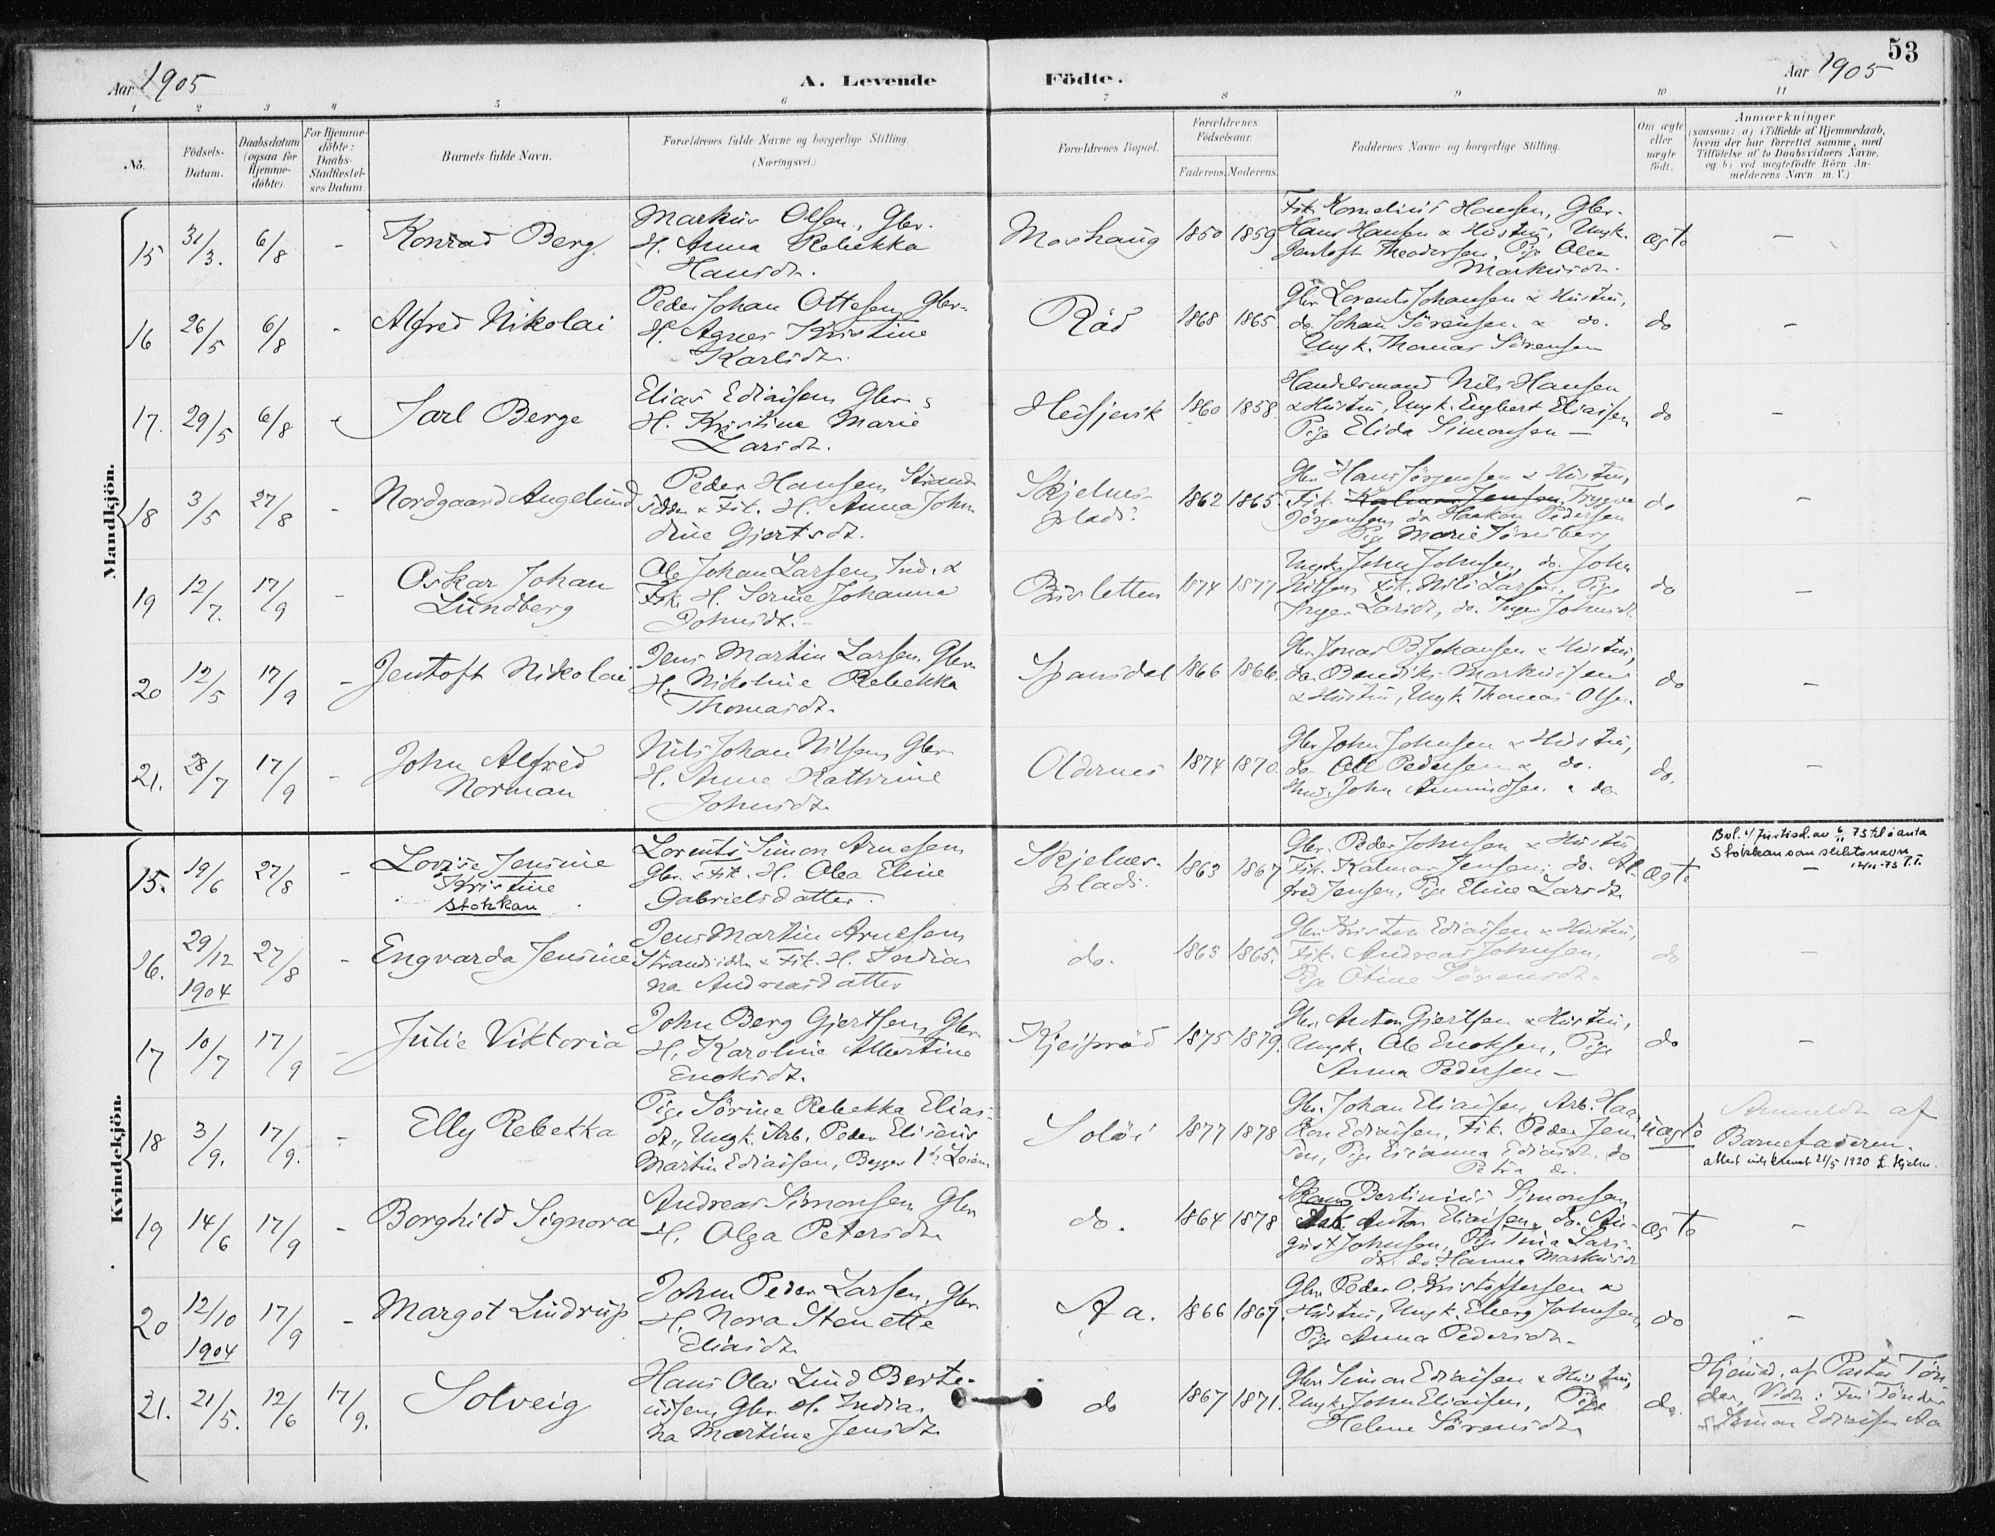 53
Aar 1905
A. Levende Födte.
Aar 1905
1 2 3 4 5 6 7 8 9 10 11
No.
Födsels-Datum.
Daabsdatum (ogsaa for Hjemme-döbte)
For Hjemme-döbte: Daabs-Stadfæstel-ses Datum
Barnets fulde Navn.
Forældrenes fulde Navne og borgerlige Stilling. (Næringsvei.)
Forældrenes Bopæl.
Forældrenes Födselsaar.
Faderens. Moderens.
Faddernes Navne og borgerlige Stilling.
Om ægte eller uægte födt.
Anmærkninger
(saasom: a) i Tilfælde af Hjemmedaab,
hvem der har forrettet samme, med
Tilföielse af to Daabsvidners Navne,
og b) ved uægtefödte Börn An-
melderens Navn m. V.)
Mandkjön.
15 31/3. 6/8 - Konrad Berg.
Markus Olsen, Gbr.
H. Anna Rebekka
Hansdtr.
Moshaug 1850 1859
Fisk. Kornelius Hansen, Gbr.
Hans Hansen & Hustru, Ungk.
Jentoft Theodorsen, Pige Olea
Markusdtr.
ægte -
16 26/5 6/8 - Alfred Nikolai
Peder Johan Ottesen, Gbr.
H. Agnes Kristine
Karlsdtr.
Röd 1868 1865.
Gbr. Lorents Johansen & Hustru,
do. Johan Sörensen & do.
Ungk. Thomas Sörensen
do -
17. 29/5 6/8 - Jarl Berge
Elias Ediassen Gbr.
H. Kristine Marie
Larsdtr.
Hessjevik 1860 1858
Handelsmand Nils Hansen
& Hustru, Ungk. Engbert Eliassen
Pige Elida Simonsen -
do -
18 3/5 27/8 - Nordgaard Angelund
Peder Hansen, Strand
sidder & Fisk. H. Anna John
dine Gjertsdtr.
Skjelnes-
plads. 1862 1865.
Gbr. Hans Jörgensen & Hustru,
Fisk. Kalmar Jensen, Tryggve
Jörgensen, do Haakon Pedersen
Pige Marie Tönsberg
do -
19 12/7. 17/9 - Oskar Johan
Lundberg
Ole Johan Larsen, Ind. &
Fisk. H. Sorine Johanna
Johnsdtr. -
Bösletten 1874 1877
Ungk. John Johnsen, do. John
Nilsen, Fisk. Nils Larsen, Pige
Inger Larsdtr, do. Inger Johnsdtr
do -
20 12/5 17/9 - Jentoft Nikolai
Jens Martin Larsen, Gbr.
H. Nikoline Rebekka
Thomasdtr.
Spansdal 1866 1866.
Gbr. Jonas B. Johansen & Hustru,
do. Bendiks Markussen
& Hustru, Ungk. Thomas Olsen
do -
21. 28/7 17/9 - John Alfred
Norman
Nils Johan Nilsen, Gbr.
H. Anne Kathrine
Johnsdtr.
Oldernes 1874 1870.
Gbr. John Johnsen & Hustru,
do Ole Pedersen & do.
Ind. John Amundsen & do
do. -
Kvindekjön.
15. 19/6 27/8 - Lovise Jensine
Kristine
Stokkan
Lorents Simon Arnesen
Gbr. & Fisk. H. Olea Eline
Gabrielsdatter.
Skjelnes-
plads. 1863 1867
Gbr. Peder Johnsen & Hustru
Fisk. Kalmar Jensen, do. Al-
fred Jensen, Pige Eline Larsdtr.
ægte -
Bev. 73 til å anta
Stokkan som slektsnavn
16. 29/12 1904 27/8 - Engvarda Jensine
Jens Martin Arnesen
Strandsidder & Fisk. H. Indian
na Andreasdatter
do. 1863 1865.
Gbr. Kristen Ediassen & Hustru,
Fisk. Andreas Johnsen,
Pige Otine Sörensdtr.
do -
17 10/7 17/9 - Julie Viktoria
John Berg Gjertsen, Gbr.
H. Karoline Albertine
Enoksdtr.
Kjeiprød 1875 1879.
Gbr. Anton Gjertsen & Hustru,
Ungk. Ole Enoksen, Pige
Anna Pedersen -
do -
18 3/9. 17/9. - Elly Rebekka
Pige Sörine Rebekka Elias-
dtr., Ungk. Arb. Peder Elisæus
Martin Ediassen, Begges 1ste Leierm.
Soløi 1877 1878
Gbr. Johan Eliassen, Arb. Haa
kon Ediassen, Fisk. Peder Jen
sen, Pige Edianna Ediasdtr. do
Petra do.
uægte
Anmeldt af
Barnefaderen.
attest utskrevet 21/5 1920 L. Hjelm.
19 14/6 17/9 - Borghild Signora
Andreas Simonsen, Gbr.
H. Olga Petersdtr
do. 1864 1878
Bertinius Simonsen
Fisk. Anton Eliassen, do. Au-
gust Johnsen, Pige Tina Lars-
dtr. do. Hanna Markusdtr
ægte -
20 12/10 1904 17/9 - Margot Lindrup
John Peder Larsen, Gbr.
H. Nora Stenette
Eliasdtr.
Aa. 1866 1867.
Gbr. Peder O. Kristoffersen &
Hustru, Ungk. Eberg Johnsen,
Pige Anna Pedersdtr.
do -
21. 21/5. 12/6 17/9. Solveig
Hans Olai Lind Berte-
ussen, Gbr. H. Indian
na Martine Jensdtr
do 1867 1871.
Gbr. Simon Ediassen & Hustru,
Ungk. John Eliassen, Pige
Helene Sörensdtr
do.
Hjemmed. af Pastor Tön
der, Vidn: Fru Tönder
& Simon Ediassen Aa